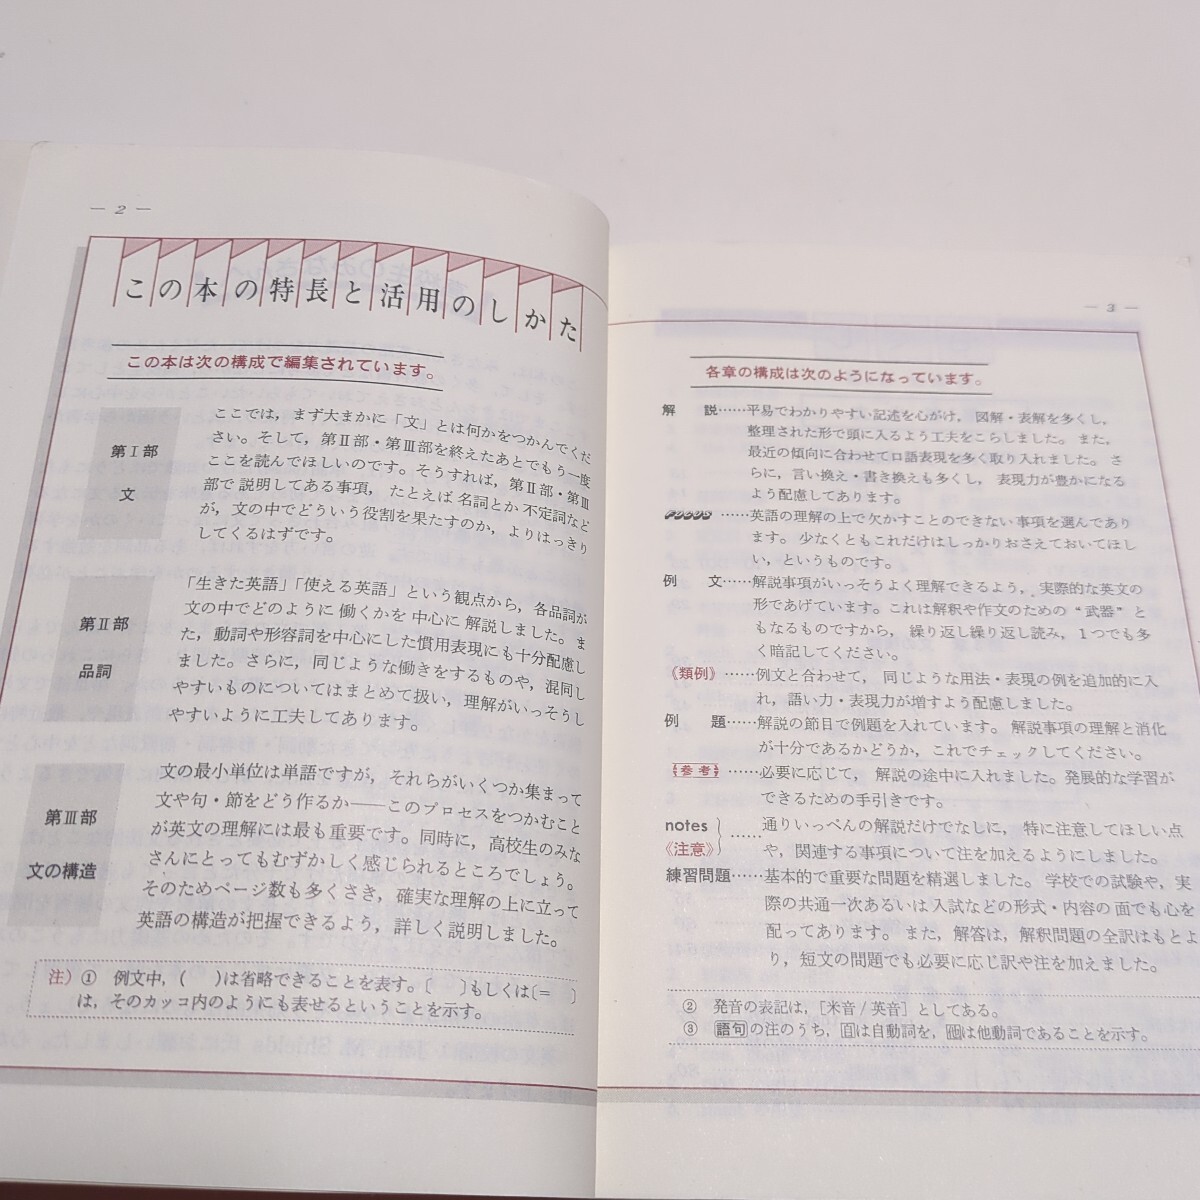 — 2 —
この本の特長と活用のしかた
この本は次の構成で編集されています。
第Ⅰ部
文
ここでは，まず大まかに「文」とは何かをつかんでくだ
さい。そして，第Ⅱ部・第Ⅲ部を終えたあとでもう一度
ここを読んでほしいのです。そうすれば，第Ⅱ部・第Ⅲ
部で説明してある事項，たとえば名詞とか不定詞など
が，文の中でどういう役割を果たすのか，よりはっきり
してくるはずです。
第Ⅱ部
品詞
「生きた英語」「使える英語」という観点から，各品詞が
文の中でどのように働くかを中心に解説しました。ま
た，動詞や形容詞を中心にした慣用表現にも十分配慮し
ました。さらに，同じような働きをするものや，混同し
やすいものについてはまとめて扱い，理解がいっそうし
やすいように工夫してあります。
第Ⅲ部
文の構造
文の最小単位は単語ですが，それらがいくつか集まって
文や句・節をどう作るか——このプロセスをつかむこと
が英文の理解には最も重要です。同時に，高校生のみな
さんにとってもむずかしく感じられるところでしょう。
そのためページ数も多くさき，確実な理解の上に立って
英語の構造が把握できるよう，詳しく説明しました。
注） ① 例文中，（　）は省略できることを表す。〔　〕もしくは〔＝　〕
は，そのカッコ内のようにも表せるということを示す。
— 3 —
各章の構成は次のようになっています。
解　説……平易でわかりやすい記述を心がけ，図解・表解を多くし，
整理された形で頭に入るよう工夫をこらしました。また，
最近の傾向に合わせて口語表現を多く取り入れました。さ
らに，言い換え・書き換えも多くし，表現力が豊かになる
よう配慮してあります。
FOCUS ……英語の理解の上で欠かすことのできない事項を選んであり
ます。少なくともこれだけはしっかりおさえておいてほし
い，というものです。
例　文……解説事項がいっそうよく理解できるよう，実際的な英文の
形であげています。これは解釈や作文のための“武器”と
もなるものですから，繰り返し繰り返し読み，1つでも多
く暗記してください。
《類例》……例文と合わせて，同じような用法・表現の例を追加的に入
れ，語い力・表現力が増すよう配慮しました。
例　題……解説の節目で例題を入れています。解説事項の理解と消化
が十分であるかどうか，これでチェックしてください。
【参考】……必要に応じて，解説の途中に入れました。発展的な学習が
できるための手引きです。
notes
《注意》……通りいっぺんの解説だけでなしに，特に注意してほしい点
や，関連する事項について注を加えるようにしました。
練習問題……基本的で重要な問題を精選しました。学校での試験や，実
際の共通一次あるいは入試などの形式・内容の面でも心を
配ってあります。また，解答は，解釈問題の全訳はもとよ
り，短文の問題でも必要に応じ訳や注を加えました。
② 発音の表記は，［米音／英音］としてある。
③ 語句の注のうち，自は自動詞を，他は他動詞であることを示す。